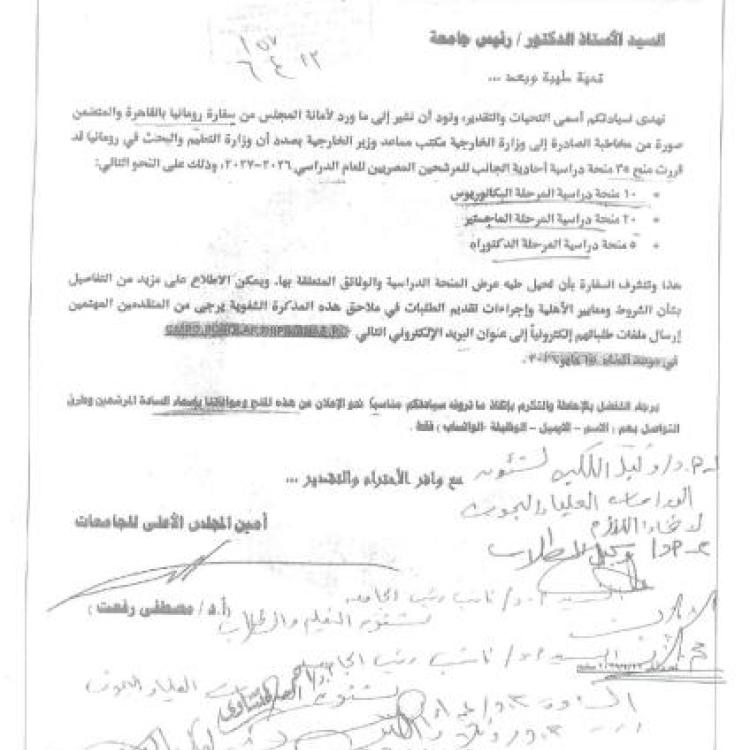 السيد الأستاذ الدكتور / رئيس جامعة
١٥٧
١٢ ٤ ٦
تحية طيبة وبعد ...
نهدى لسيادتكم أسمى التحيات والتقدير، ونود أن نشير إلى ما ورد لأمانة المجلس من سفارة رومانيا بالقاهرة والمتضمن
صورة من مخاطبة الصادرة إلى وزارة الخارجية مكتب مساعد وزير الخارجية بصدد أن وزارة التعليم والبحث في رومانيا قد
قررت منح ٣٥ منحة دراسية أحادية الجانب للمرشحين المصريين للعام الدراسي ٢٠٢٦-٢٠٢٧، وذلك على النحو التالي:
• ١٠ منحة دراسية المرحلة البكالوريوس
• ٢٠ منحة دراسية المرحلة الماجستير
• ٥ منحة دراسية المرحلة الدكتوراه
هذا وتتشرف السفارة بأن تحيل طيه عرض المنحة الدراسية والوثائق المتعلقة بها، ويمكن الاطلاع على مزيد من التفاصيل
بشأن الشروط ومعايير الأهلية وإجراءات تقديم الطلبات في ملاحق هذه المذكرة الشفوية يرجى من المتقدمين المهتمين
إرسال ملفات طلباتهم إلكترونياً إلى عنوان البريد الإلكتروني التالي
في موعد أقصاه ١٥ مايو ٢٠٢٦.
برجاء التفضل بالإحاطة والتكرم بإتخاذ ما ترونه سيادتكم مناسباً نحو الإعلان عن هذه المنح وموافاتنا بأسماء السادة المرشحين وطرق
التواصل بهم ( الاسم – الايميل – الوظيفة -الواتساب ) فقط .
مع وافر الأحترام والتقدير ...
وكيل الكلية لشئون
الدراسات العليا والبحوث
لاتخاذ اللازم
وكيل الطلاب
أمين المجلس الأعلى للجامعات
السيد أ.د/ نائب رئيس الجامعة
لشئون التعليم والطلاب
(أ.د / مصطفى رفعت )
السيد أ.د/ نائب رئيس الجامعة
لشئون العليا والبحوث